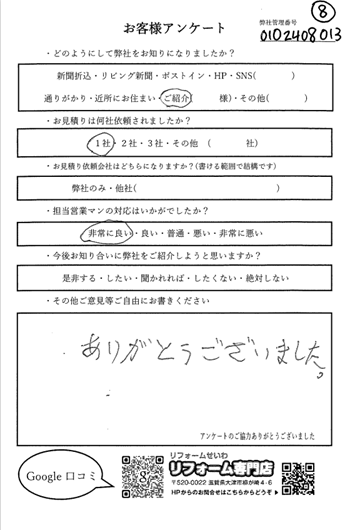 ⑧
お客様アンケート
弊社管理番号
0102408013
・どのようにして弊社をお知りになりましたか？
新聞折込・リビング新聞・ポストイン・HP・SNS(　　　)
通りがかり・近所にお住まい・ご紹介(　　　様)・その他(　　　)
・お見積りは何社依頼されましたか？
1社・2社・3社・その他　(　　　社)
・お見積り依頼会社はどちらになりますか？(書ける範囲で結構です)
弊社のみ・他社(　　　)
・担当営業マンの対応はいかがでしたか？
非常に良い・良い・普通・悪い・非常に悪い
・今後お知り合いに弊社をご紹介しようと思いますか？
是非する・したい・聞かれれば・したくない・絶対しない
・その他ご意見等ご自由にお書きください
ありがとうございました。
アンケートのご協力ありがとうございました
Google 口コミ
リフォームせいわ
リフォーム専門店
〒520-0022 滋賀県大津市柳が崎4-6
HPからのお問合せはこちらからどうぞ